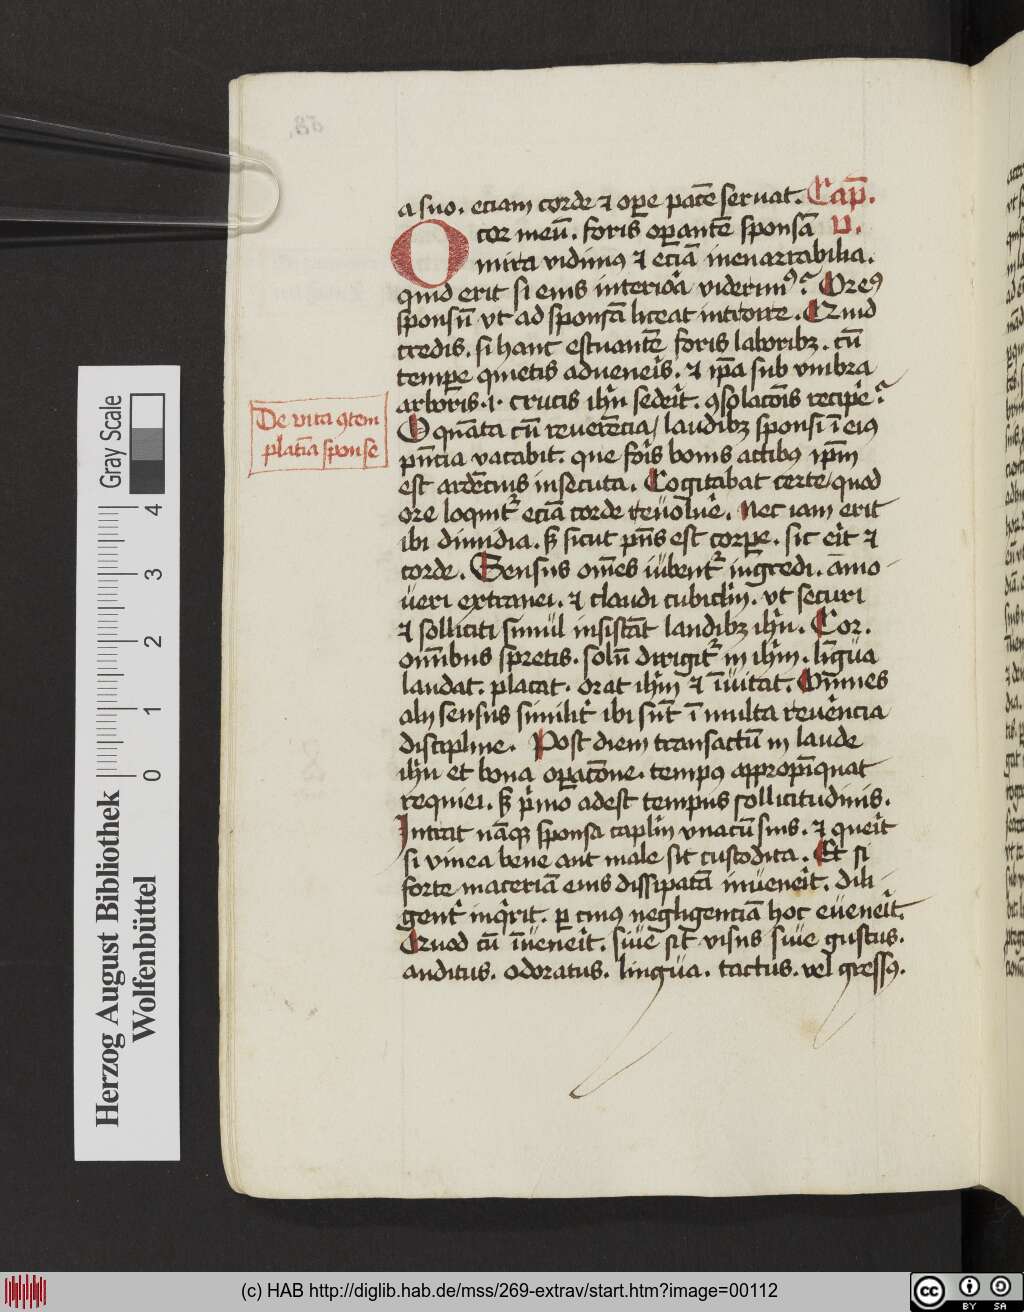 a suo. eciam corde ⁊ ope᷑ pace᷑ seruat. Cap̄.
O cor meū. foris opantē sponsā v.
mira vidimꝯ ⁊ eciā inenarrabilia.
quid erit si eius interiora viderimꝯ? Oremꝯ
sponsū vt ad sponsā liceat introire. Quid
credis. si hanc estuantē foris laboribꝫ. cū
tempe quietis aduenerīs. ⁊ ipā sub vmbra
arboris .i. crucis ihū sederit. ꝯsolacōis recipe?
O quāta cū reuerēcia / laudibꝫ sponsi ī eiꝰ
pn̄cia vacabit. que foris bonis actibꝰ ipm̄
est ardēcius insecuta. Cogitabat certe / quod
ore loquit᷑ eciā corde reuoluē. Nec iam erit
ibi dimidia. sꝫ sicut pn̄s est corpe. sic erit ⁊
corde. Sensus om̄es iubent᷑ ingredi. āmo
ueri extranei. ⁊ claudi cubiclm̄. vt securi
⁊ solliciti simul insistāt laudibꝫ ihū. Cor.
omībus spretis. solū dirigit᷑ in ihm̄. lingua
laudat. placat. orat ihm̄ ⁊ īuitat. Om̄nes
alij sensus similit᷑ ibi sūt ī multa reuerencia
discipline. Post diem transactū in laude
ihū et bona opacōne. tempꝰ appropīquat
requiei. sꝫ p̄mo adest tempus sollicitudinis.
Intrat nāqꝫ sponsa caplm̄ vnacū suis. ⁊ querit
si vinea bene aut male sit custodita. Et si
forte maceriā eius dissipatā inuenerit. dili
gent᷑ inq̄rit. ꝑ cuiꝰ negligenciā hoc euenerit.
Quod cū īuenerit. siue sit visus siue gustus.
auditus. odoratus. lingua. tactus. vel gressꝰ.
De vita ꝯtem
platīa sponse
Gray Scale
4
3
2
1
0
Herzog August Bibliothek
Wolfenbüttel
(c) HAB http://diglib.hab.de/mss/269-extrav/start.htm?image=00112
cc
BY SA